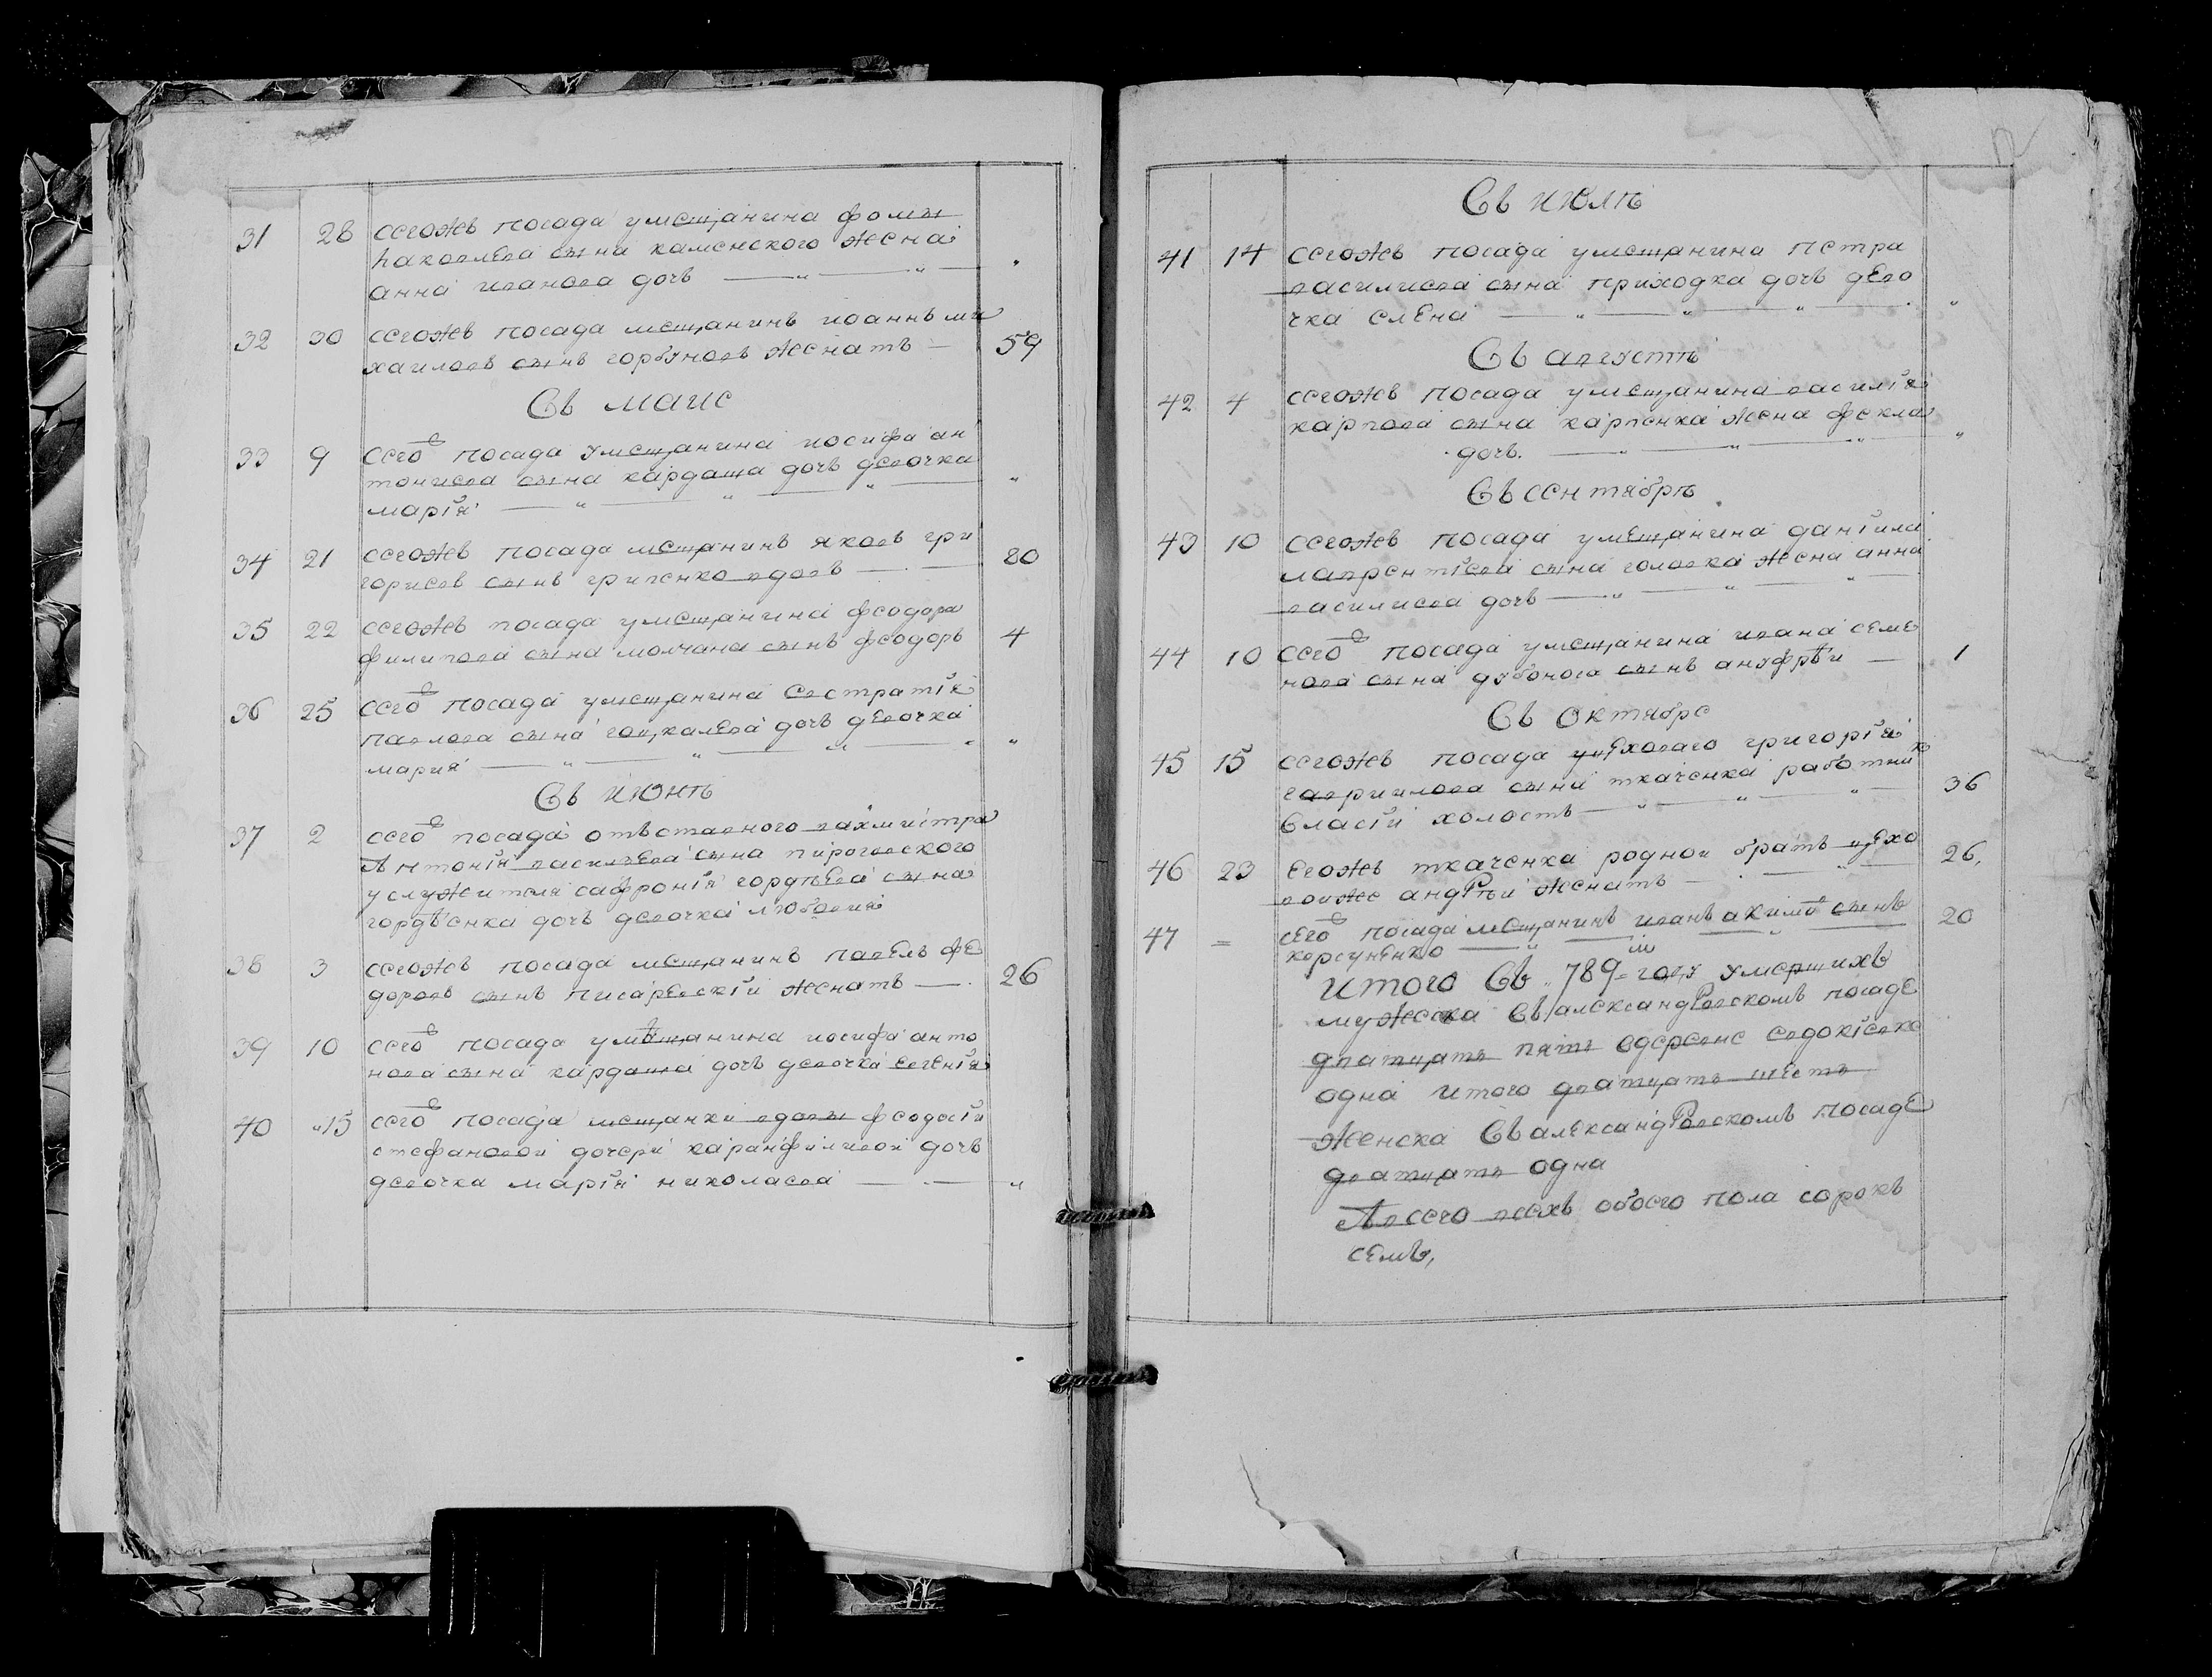 31 28 сегожъ посада умещанина фомы
Наковлева сына каменского жена
анна иванова дочь
32 30 сегожъ посада мещанинъ иоаннъ ми
хаиловъ сынъ горбуновъ женатъ 59
Въ маие
33 9 сего ж посада умещанина иосифа ан
тониева сына кардаша дочь девочка
марїя
34 21 сегожъ посада мещанинъ яковъ гри
гориевъ сынъ гриценко вдовъ 80
35 22 сегожъ посада умещанина феодора
филипова сына молчана сынъ феодоръ 4
36 25 сего ж посада умещанина евстратїя
павлова сына гоцкалева дочь девочка
мария
Въ июнѣ
37 2 сего ж посада отъставного вахмистра
Антонїя василъева сына пироговского
услужителя сафронїя гордѣева сына
гордѣенка дочь девочка любовия
38 3 сегожъ посада мещанинъ павелъ фе
доровъ сынъ писаревскїи женатъ 26
39 10 сего ж посада умѣщанина иосифа анто
нова сына кардаша дочь девочка евгенїя
40 15 сего ж посада мещанки вдовы феодосїи
стефановои дочери каранфиливои дочь
девочка марїя николаева
Въ июлѣ
41 14 сегожъ посада умещанина петра
василиева сына приходка дочь дево
чка елена
Въ августѣ
42 4 сегожъ посада умещанина василїя
карпова сына карпенка жена фекла
дочь.
Въ сентябрѣ
43 10 сегожъ посада умещанина данїила
лаврентїева сына головка жена анна
василиева дочь
44 10 сего ж посада умещанина ивана семе
нова сына дубонога сынъ ануфрѣи 1
Въ октябре
45 15 сегожъ посада уцеховаго григорїя
гавриилова сына ткаченка работник
Власїи холостъ 36
46 23 егожъ ткаченка роднои братъ цехо
воиже андрѣи женатъ 26,
47 = сего ж посада мещанинъ иванъ акимов сынъ 20
корсуненко
итого Въ 789= году умершихъ
мужеска Въ александровскомъ посаде
дватцать пять вдеревне евдокїевке
одна итого дватцать шесть
женска Въ александровскомъ посаде
дватцать одна
Авсего всехъ обоего пола сорокъ
семъ,